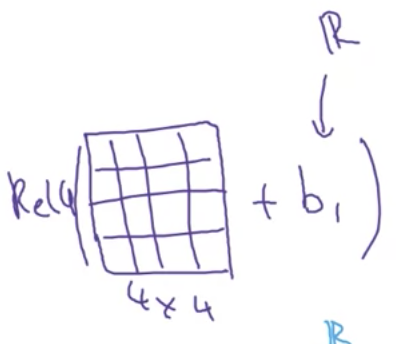 ℝ
ReLU( + b₁ )
4 x 4
ℝ